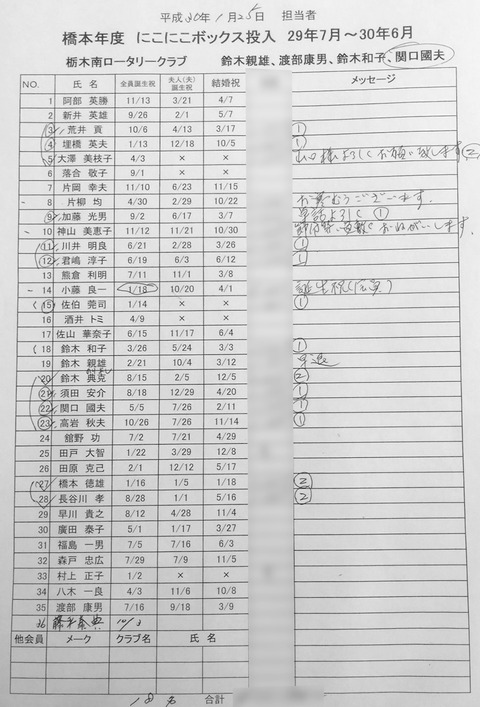 平成30年1月25日 担当者
橋本年度 にこにこボックス投入 29年7月～30年6月
栃木南ロータリークラブ 鈴木親雄、渡部康男、鈴木和子、関口國夫
NO. 氏 名 全員誕生祝 夫人(夫)誕生祝 結婚祝 メッセージ
1 阿部 英勝 11/13 3/21 4/7
2 新井 英雄 9/26 2/1 5/7
3 荒井 貢 10/6 4/13 3/17 ①
4 埋橋 英夫 1/13 12/18 10/5 ①
5 大澤 美枝子 4/3 × × よろしくお願い致します ②
6 落合 敬子 9/1 ×
7 片岡 幸夫 11/10 6/23 11/15
8 片柳 均 4/30 2/29 10/22 お寒むうございます。
9 加藤 光男 9/2 6/17 3/7 ①
10 神山 美恵子 11/12 11/21 10/30 おねがいします
11 川井 明良 6/21 2/28 3/26 ①
12 君嶋 淳子 6/19 6/3 6/12 ①
13 熊倉 利明 7/11 11/1 3/8
14 小藤 良一 1/18 10/20 4/1 誕生祝
15 佐伯 莞司 1/14 × × ①
16 酒井 トミ 4/9 × ×
17 佐山 華奈子 6/15 11/17 6/4
18 鈴木 和子 3/26 5/24 3/3 ①
19 鈴木 親雄 2/21 10/4 3/12 早退
20 鈴木 典克 8/15 2/5 12/5 ②
21 須田 安介 8/18 12/29 4/20 ①
22 関口 國夫 5/5 7/26 2/11 ①
23 高岩 秋夫 10/26 7/26 11/14 ①
24 舘野 功 7/2 7/21 4/29
25 田戸 大智 1/22 3/29 12/8
26 田原 克己 2/1 12/12 5/17
27 橋本 徳雄 1/16 1/5 1/18 ②
28 長谷川 孝 8/28 1/1 5/16 ②
29 早川 貴之 8/12 4/28 11/4
30 廣田 泰子 5/1 1/17 3/27
31 福島 一男 7/5 7/16 6/3
32 森戸 忠広 7/29 7/9 11/5
33 村上 正子 1/2 × ×
34 八木 一良 4/3 11/6 10/8
35 渡部 康男 7/16 9/18 3/9
36 10/3
他会員 メーク クラブ名 氏 名
18名 合計